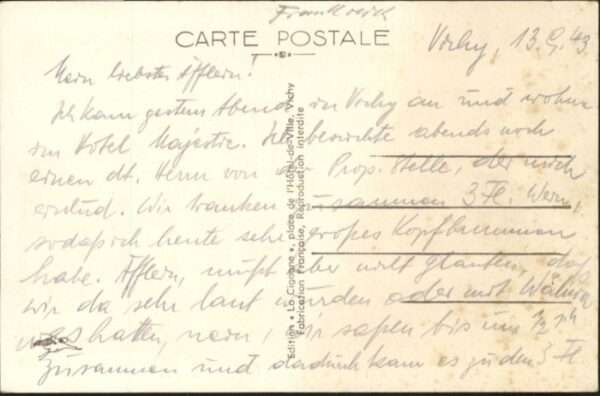 Frankreich
CARTE POSTALE
Vichy, 13.9.43
Mein liebstes Äfflein!
Ich kam gestern Abend in Vichy an und wohne
im Hotel Majestic. Ich besuchte abends noch
einen dt. Herrn von der Prop. Stelle, der mich
einlud. Wir tranken zusammen 3 Fl. Wein,
sodaß ich heute sehr großes Kopfbrummen
habe. Äfflein, mußt aber nicht glauben, daß
wir da sehr laut wurden oder mit
hatten, nein, wir saßen bis um 1/2
zusammen und dadurch kam es zu den 3 Fl.
Edition « La Cigogne », place de l'Hôtel-de-Ville, Vichy
Fabrication Française, Reproduction interdite